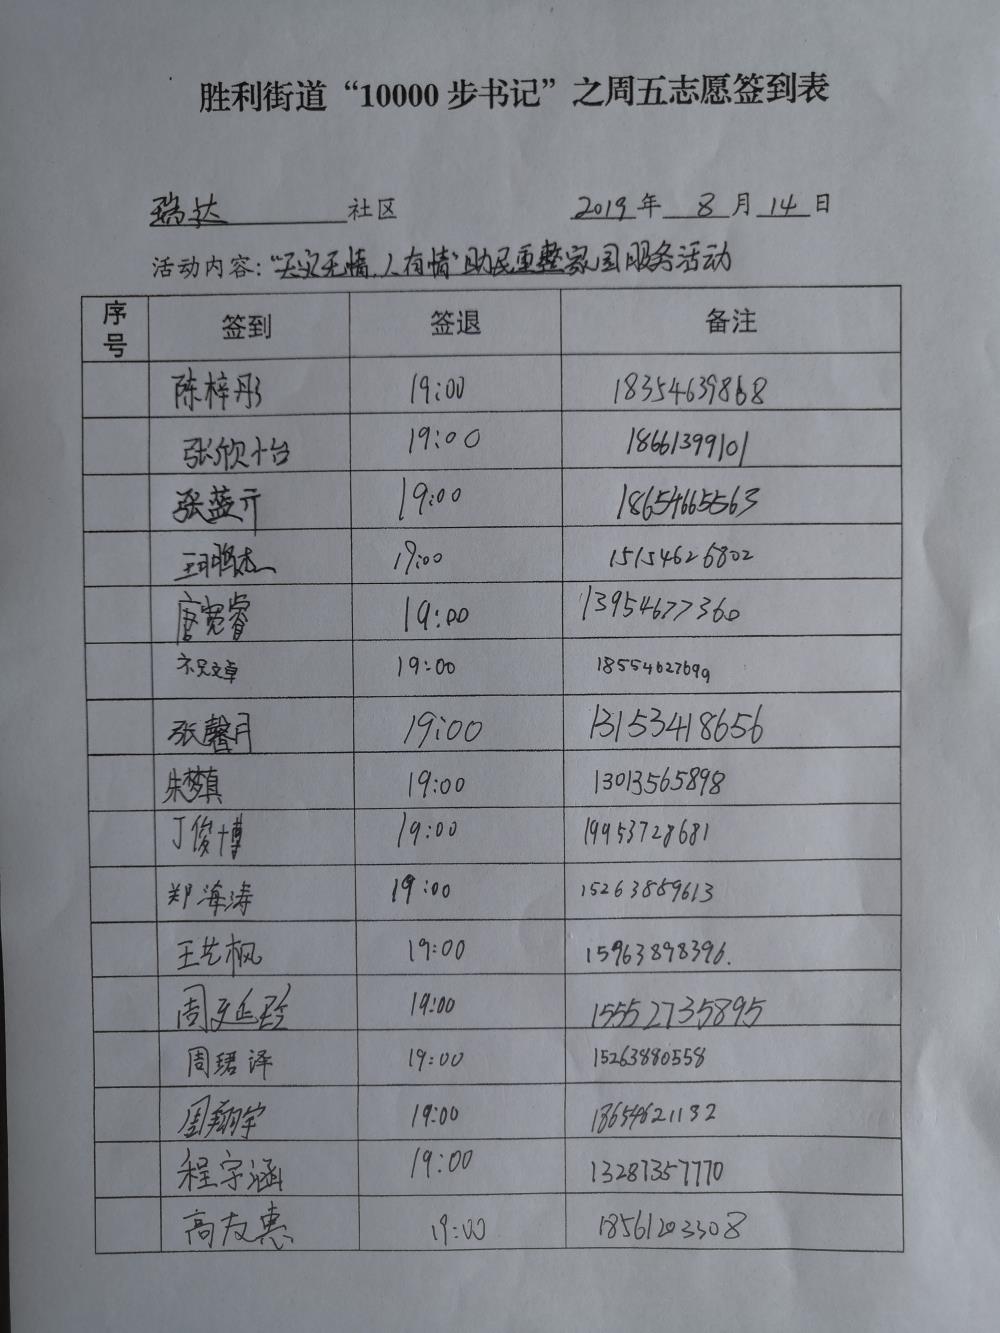 胜利街道“10000步书记”之周五志愿签到表
瑞达 社区 2019年 8月 14日
活动内容：“天灾无情，人有情”助民重整家园服务活动
序号 签到 签退 备注
陈梓彤 19:00 18354639868
张欣怡 19:00 18661399101
张蓝亓 19:00 18654665563
19:00 15154626802
唐宽睿 19:00 13954677360
祝文卓 19:00 18554627699
张馨月 19:00 13153418656
朱梦真 19:00 13013565898
丁俊博 19:00 19953728681
郑海涛 19:00 15263889613
王艺枫 19:00 15963898396.
周延玲 19:00 15552735895
周珺泽 19:00 15263880558
周翔宇 19:00 18654621132
程字涵 19:00 13287357770
高友惠 19:00 18561203308